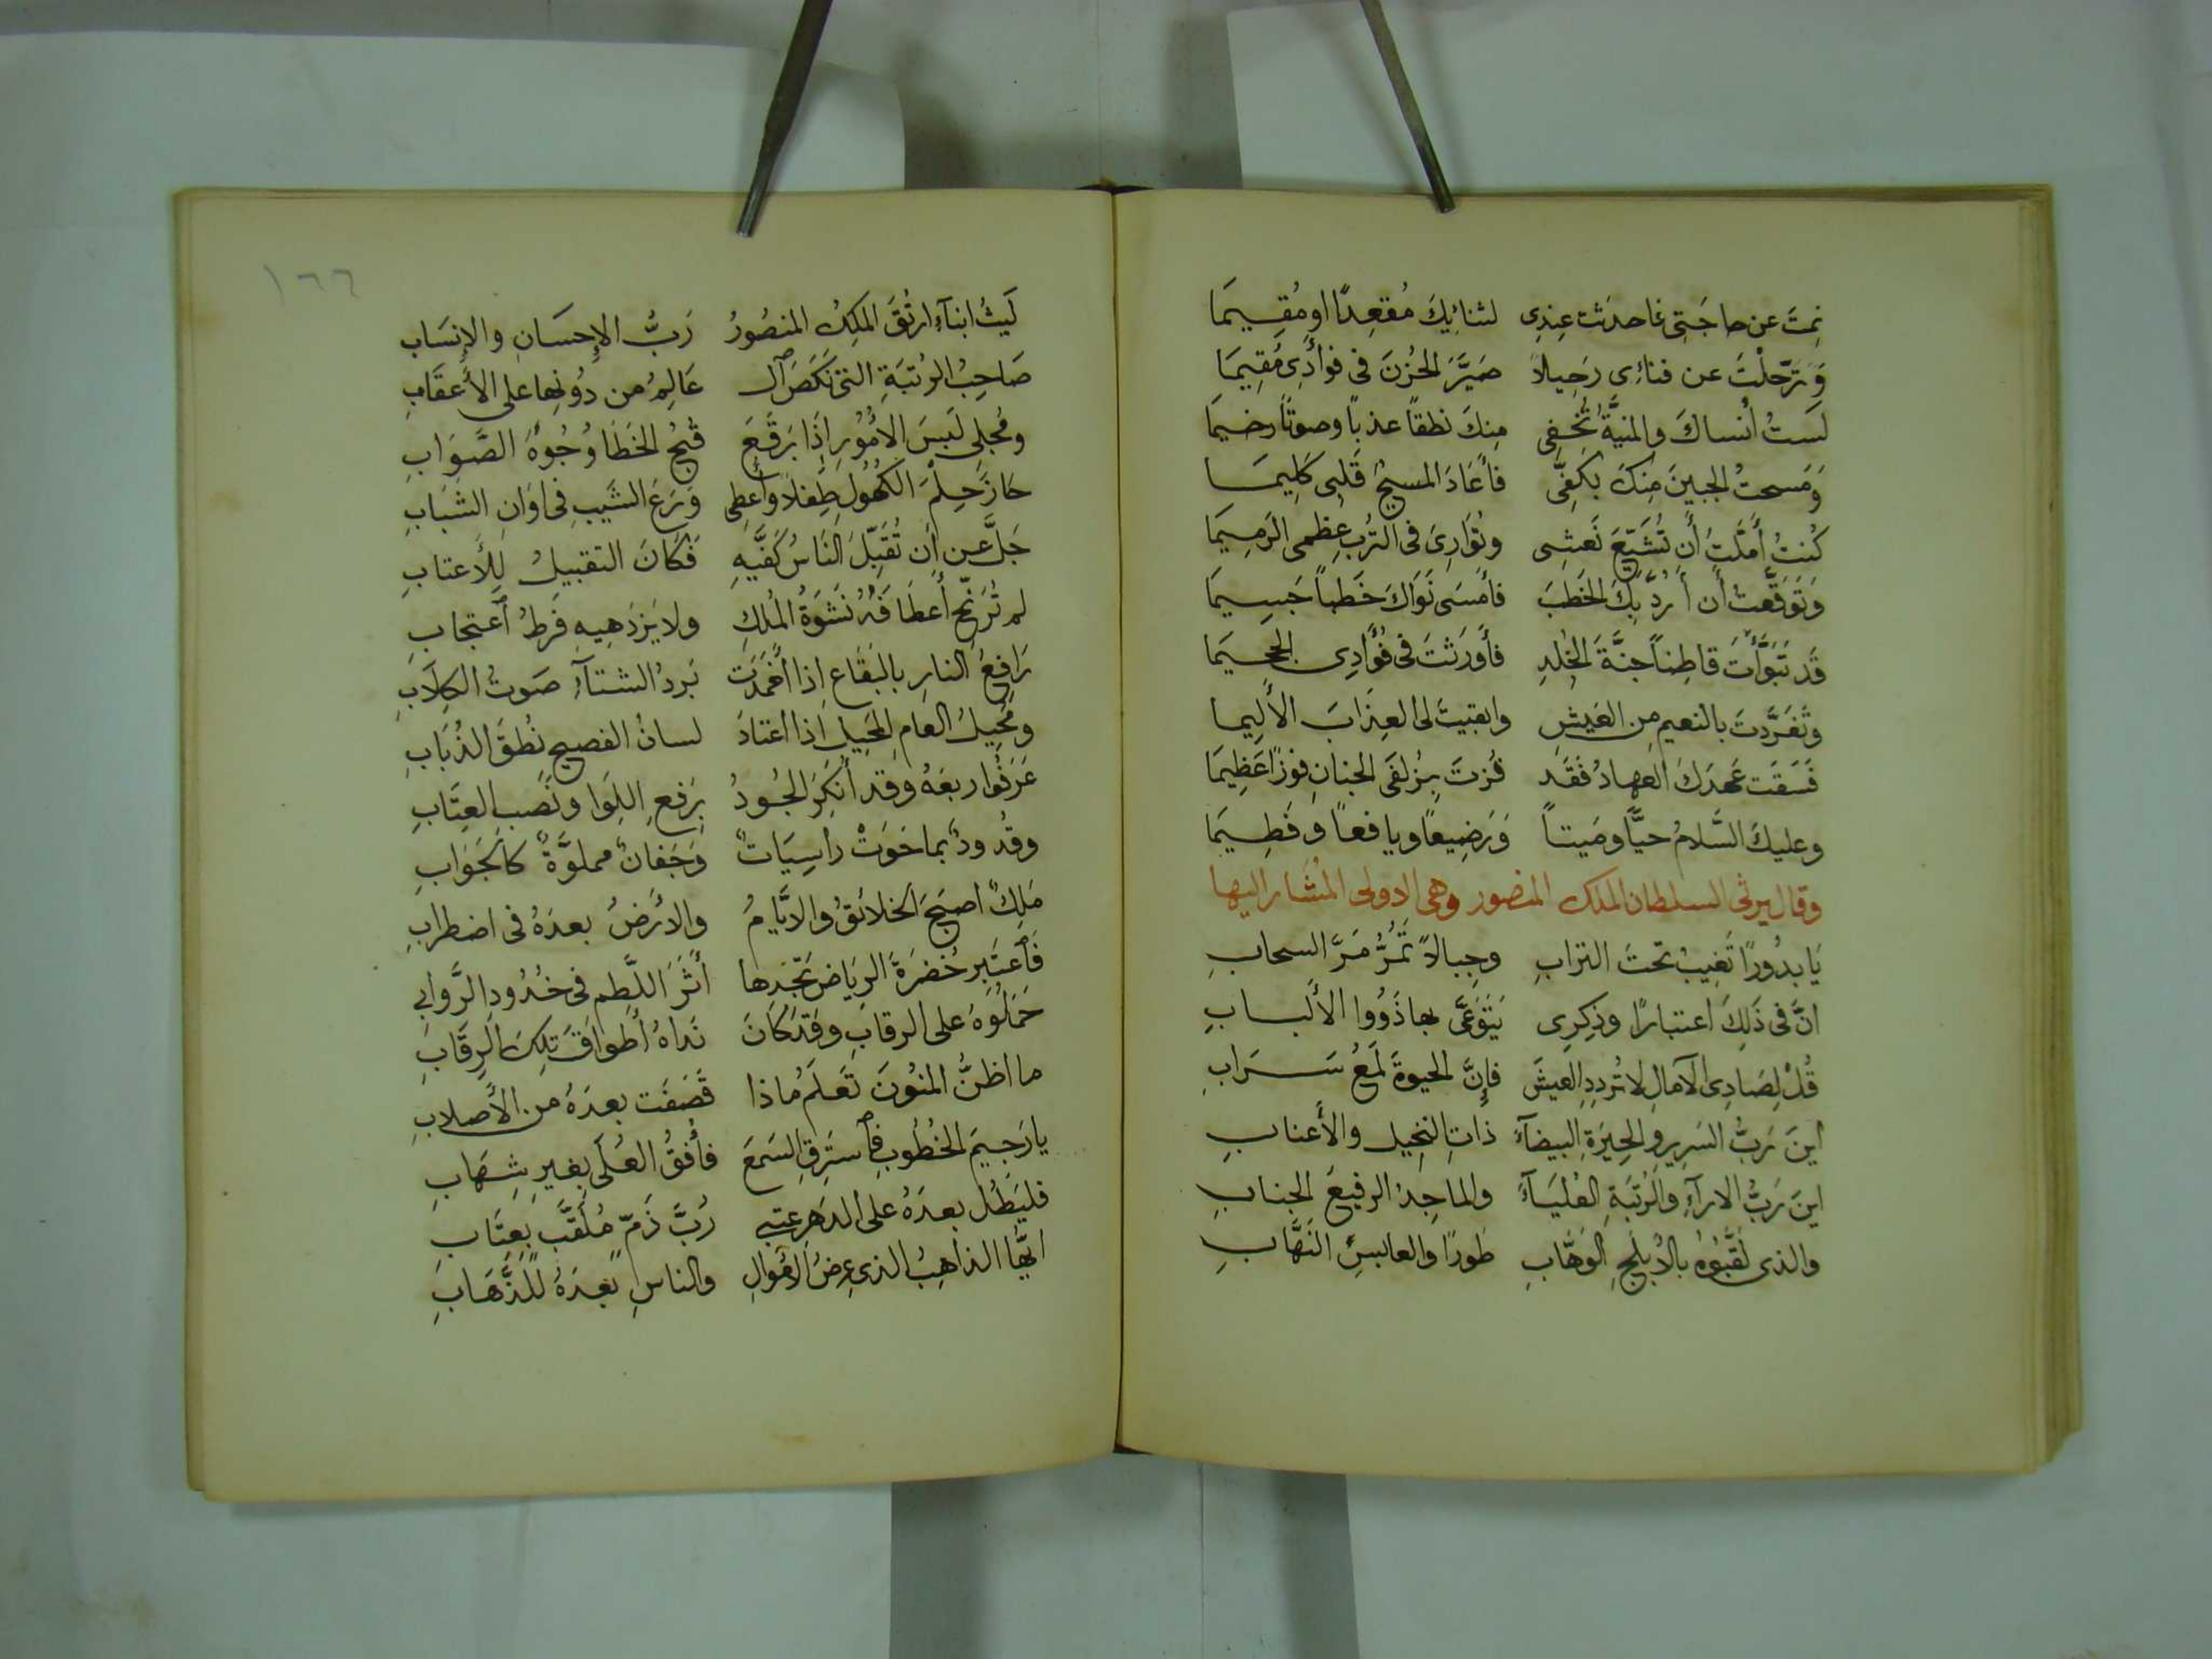 نِمتَ عن حاجَتِى فاحدَثت عِندِى لثنائِيكَ مُقعِدًا اومُقِيمَا
وَتَرَحَّلْتَ عن فنائِى رَحِيلاً صَيَّرَ الحُزنَ فى فوأدِى مُقِيمَا
لَستُ أنساكَ والمنيَّةُ تُخفِى مِنكَ نطقاً عذباً وصوتًا رخيمَا
وَمَسحتُ الجبينَ مِنكَ بكَفِىَّ فأعَادَ المسيحُ قَلبِى كَلِيمَا
كُنتُ أمَّلتُ أن تُشَيِّعَ نَعشِى وتُوَارِىَ فى التُربِ عِظمِى الرَمِيمَا
وَتَوقَّعتُ أن أرُدَّ بكَ الخَطبَ فأمسَى نَوَاكَ خَطباً جَسِيمَا
قَد تَبَوَّأتَ قاطِناً جنَّةَ الخُلدِ فأورَثتَ فى فُؤَادِى الجحِيمَا
وتَفَرَّدتَ بالنعيمِ مِن العَيشِ وابقيتَ لى العِذَابَ الأَلِيما
فَسَقَت عَهدَكَ العِهادُ فَقَد فُزتَ بِزُلفَى الجنانِ فوزًا عَظِيمَا
وعليكَ السَّلامُ حيًّا ومَيتاً وَرَضِيعًا ويافعاً وفَطِيمَا
وقال يرثى السلطان الملك المنصور وهى الاولى المشار اليها
يَا بدُورًا تَغِيبُ تحتَ الترابِ وجِبالاً تَمُرُّ مَرَّ السحابِ
انَّ فى ذَلِكَ اعتبارًا وذِكرِى يَتَوَعَّى بها ذَوُوا الأَلبابِ
قُلْ لِصَادِى الآمالِ لا تُردِدِ العيشَ فإنَّ الحيوةَ لَمعُ سَرَابِ
اينَ رَبُّ السَرِيرِ والحِيرَةِ البيضآءَ ذاتِ النخيلِ والأَعنابِ
اينَ رَبُّ الارآءِ والرُتبَةِ العُليَآءَ والماجِدُ الرفيعُ الجنابِ
والذى لَقَّبُوهُ بالأبلَجِ الوَهَّابِ طورًا والعابسِ النَهَّابِ
١٦٦
لَيثُ ابنآءِ ارتُقَ المَلِكُ المنصُورُ رَبُّ الإِحسَانِ والإنسَابِ
صَاحِبُ الرُتبَةِ التى نَكَصَ ٱل عَالِمُ من دُونِها على الأَعقَابِ
ومُجلِى لَبسَ الأمُورِ إذَا بَرقَعَ قُبحُ الخَطَا وُجُوهَ الصَّوَابِ
حَازَ حِلْمَ الكُهُولِ طِفلاً وأُعطِى وَرَعَ الشَيبِ فى اوَانِ الشبَابِ
جَلَّ عن ان تُقبِّلَ الناسُ كَفَّيهِ فَكَانَ التقبيلُ لِلأَعتابِ
لم تُرَنِّح أعطَافَهُ نَشوَةُ المُلكِ ولا يَزدَهِيهِ فَرطُ ٱعتجابِ
رَافِعُ النارِ بالبَقَاعِ اذا أخمَدَت بَردُ الشتآءِ صَوتُ الكِلَابِ
ومُحِيلُ العامِ المحيلِ اذا اعتادَ لسانُ الفصيحِ نُطقَ الذُبَابِ
عَرَفُوا ربعَهُ وقد أنكَرَ الجُودُ بِرَفعِ اللِوَا ونَصبِ العِتَابِ
وقُدُودٌ بما حَوَتْ راسِيَاتٌ وَجَفانٌ مملوَّةٌ كالجَوَابِ
مَلِكٌ اصبَحَ الخلائقُ والايَّامُ والارضُ بعدَهُ فى اضطرابِ
فَٱعتَبِر خُضرَةَ الرِيَاضِ تَجِدها أثَرَ اللَّطمِ فى خُدُودِ الرَّوابِى
حَمَلُوهُ على الرقابِ وقدكَانَ نَداهُ أطوَاقَ تِلكَ الرِقَابِ
ما اظنُّ المنُونَ تَعلَمُ ماذا قَصَفَت بعدَهُ من الأَصلابِ
يا رَجيمَ الخُطُوبِ فٱستَرِقِ السَمعَ فأُفقُ العُلَى بغيرِ شِهَابِ
فليَطُل بعدَهُ على الدَهرِ عتبى رُبَّ ذَمّ مُلَقَّبٍ بعِتَابِ
ايُّها الذاهِبُ الذى عِرضُ الأموالِ والناسِ بعدَهُ للذَّهَابِ